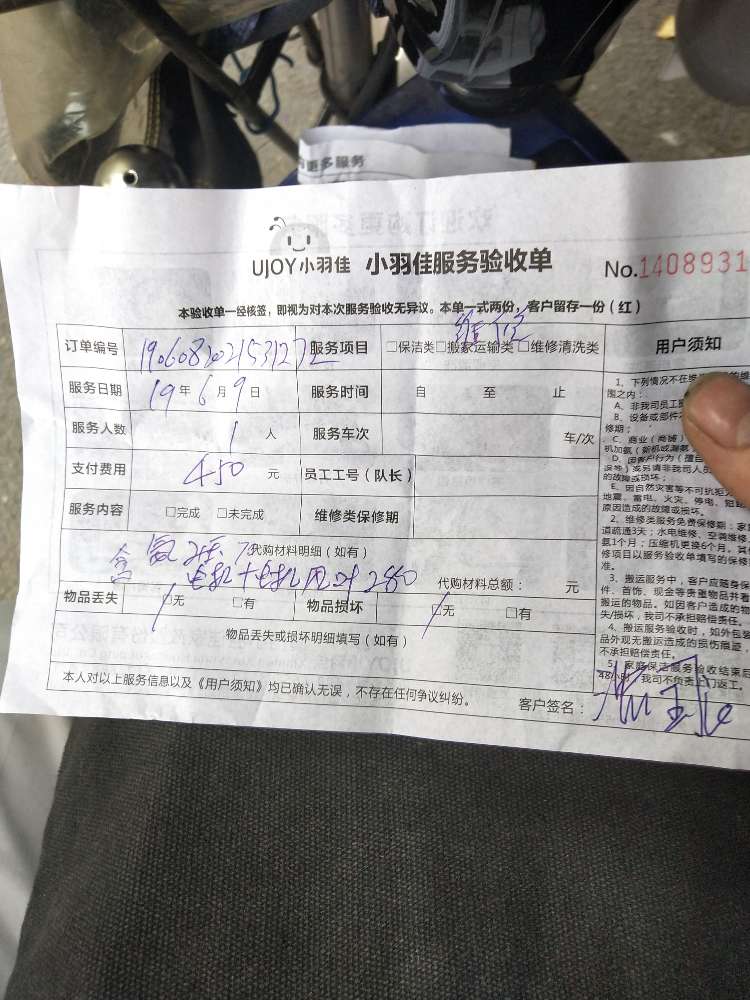 更多服务
UJOY小羽佳 小羽佳服务验收单 No.1408931
本验收单一经核签，即视为对本次服务验收无异议。本单一式两份，客户留存一份（红）
订单编号 服务项目 □保洁类□搬家运输类□维修清洗类
服务日期 19年6月9日 服务时间 自 至 止
服务人数 1 人 服务车次 车/次
支付费用 450 元 员工工号（队长）
服务内容 □完成 □未完成 维修类保修期
代购材料明细（如有）
电机+电机风叶280 代购材料总额： 元
物品丢失 □无 □有 物品损坏 □无 □有
物品丢失或损坏明细填写（如有）
本人对以上服务信息以及《用户须知》均已确认无误，不存在任何争议纠纷。
客户签名：
用户须知
1、下列情况不在维
围之内：
A、非我司员工
B、设备或部件
修期；
C、商业（商铺）
机加氨（新机或漏氨
D、因客户行为（擅自
的故障或损坏；
E、因自然灾害等不可抗拒
地震、雷电、火灾、停电、短路
原因造成的故障或损坏。
2、维修类服务免费保修期：家
道疏通3天；水电维修、空调维修
氨1个月；压缩机更换6个月，其
修项目以服务验收单填写的保修
准。
3、搬运服务中，客户应随身保
件、首饰、现金等贵重物品并看
搬运的物品。如因客户造成的物
失/损坏，我司不承担赔偿责任。
4、搬运服务验收时，如外包装
品外观无搬运造成的损伤痕迹，
不承担赔偿责任。
5、家庭保洁服务验收结束后
48小时，我司不负责上门返工。